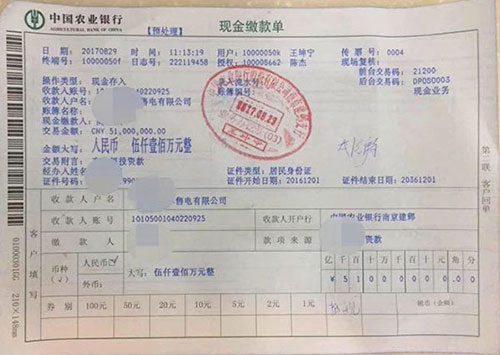 中国农业银行
AGRICULTURAL BANK OF CHINA
【预处理】
现金缴款单
日 期: 20170829 时 间: 11:13:19 用户: 10000050k 王坤宁 传 票 号: 0004
终端号: 10000050f 日志号: 222119458 授权: 100006662 陈杰 现场复核:
前台交易码: 21200
操作类型: 现金存入
后台交易码: DP050003
收款人账号: 040220925 账簿编号:
现金业务
收款人户名: 售电有限公司
交易金额: CNY 51,000,000.00
金额大写: 人民币 伍仟壹佰万元整
交易附言: 投资款
经办人姓名: 证件类型: 居民身份证
证件号码: 证件开始日期: 20161201 证件结束日期: 20361201
收 款 人 户 名 售电有限公司
收 款 人 账 号 10105001040220925 收款人开户行 中国农业银行南京建邺
缴 款 人 款 项 来 源 资款
币种(√) 人民币□ 大写: 伍仟壹佰万元整 亿 千 百 十 万 千 百 十 元 角 分
外币:
券 别 100元 50元 20元 10元 5元 2元 1元
客户填写
第二联 客户回单
210×148mm